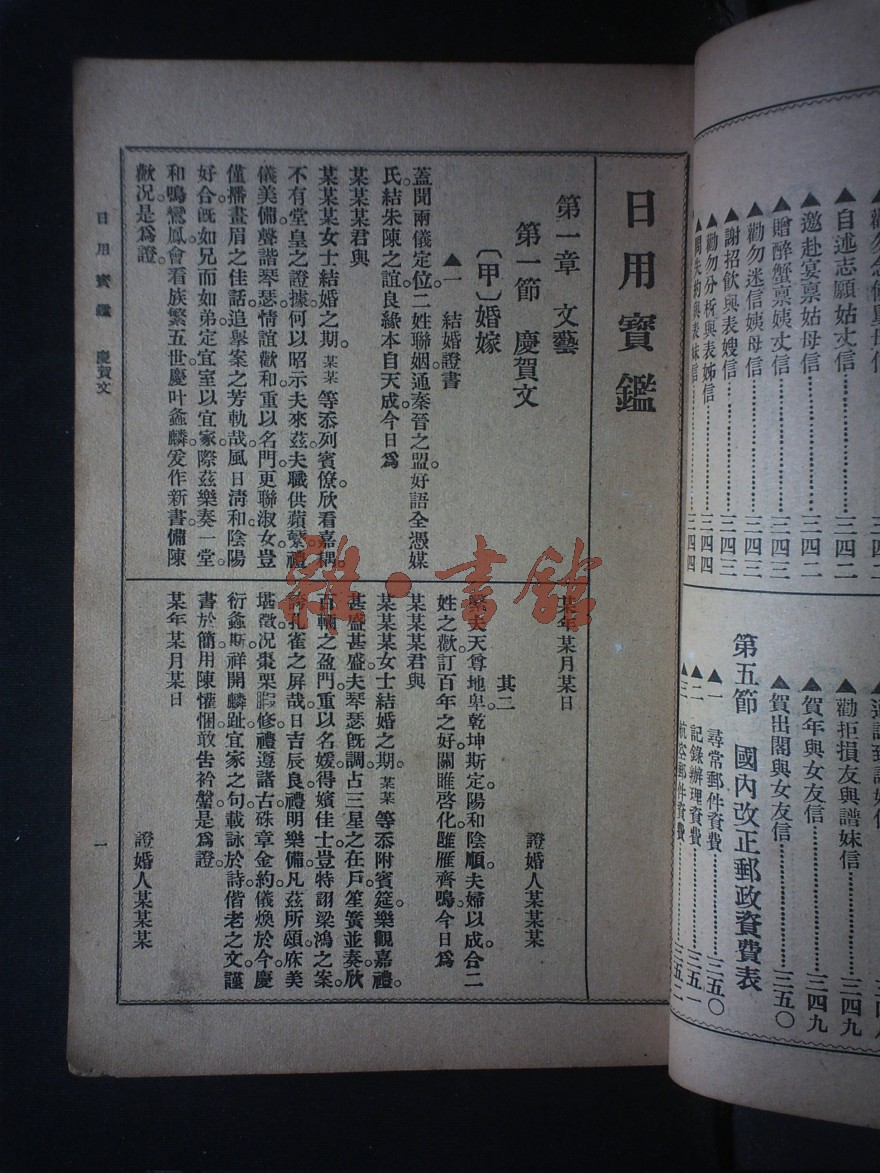 自述志願姑丈信……三四二
邀赴宴禀姑母信……三四二
贈醉蟹禀姨丈信……三四三
勸勿迷信姨母信……三四三
謝招飲與表嫂信……三四三
勸勿分析與表姊信……三四四
勸拒損友與譜妹信……三四九
賀年與女友信……三四九
賀出閣與女友信……三五〇
第五節 國內改正郵政資費表
▲一 尋常郵件資費……三五〇
▲二 記錄辦理資費……三五一
▲三 航空郵件資費……三五二
日用寶鑑
第一章 文藝
第一節 慶賀文
〔甲〕婚嫁
▲一 結婚證書
蓋聞兩儀定位。二姓聯姻。通秦晉之盟。好語全憑媒
氏。結朱陳之誼。良緣本自天成。今日為
某某某君與
某某某女士結婚之期。某某等忝列賓僚。欣看嘉耦。
不有堂皇之證據。何以昭示夫來茲。夫職供蘋蘩。禮
儀美備。聲諧琴瑟。情誼歡和。重以名門。更聯淑女。豈
僅播畫眉之佳話。追舉案之芳軌哉。風日清和。陰陽
好合。既如兄而如弟。定宜室以宜家。際茲樂奏一堂。
和鳴鸞鳳。會看族繁五世。慶叶螽麟。爰作新書。備陳
歡況。是為證。
某年某月某日
證婚人某某某
其二
緊夫天尊地卑。乾坤斯定。陽和陰順。夫婦以成。合二
姓之歡。訂百年之好。關雎啓化。雝雁齊鳴。今日為
某某某君與
某某某女士結婚之期。某某等忝附賓筵。樂觀嘉禮。
甚盛甚盛。夫琴瑟既調。占三星之在戶。笙簧並奏。欣
百輛之盈門。重以名媛。得嬪佳士。豈特詡梁鴻之案。
誇孔雀之屏哉。日吉辰良。禮明樂備。凡茲所頌。庥美
堪徵。況棗栗腶修。禮遵諸古。硃章金約。儀煥於今。慶
衍螽斯。祥開麟趾。宜家之句。載詠於詩。偕老之文。謹
書於簡。用陳懽悃。敢告衿鞶。是為證。
某年某月某日
證婚人某某某
日用寶鑑 慶賀文
一
雜·書館